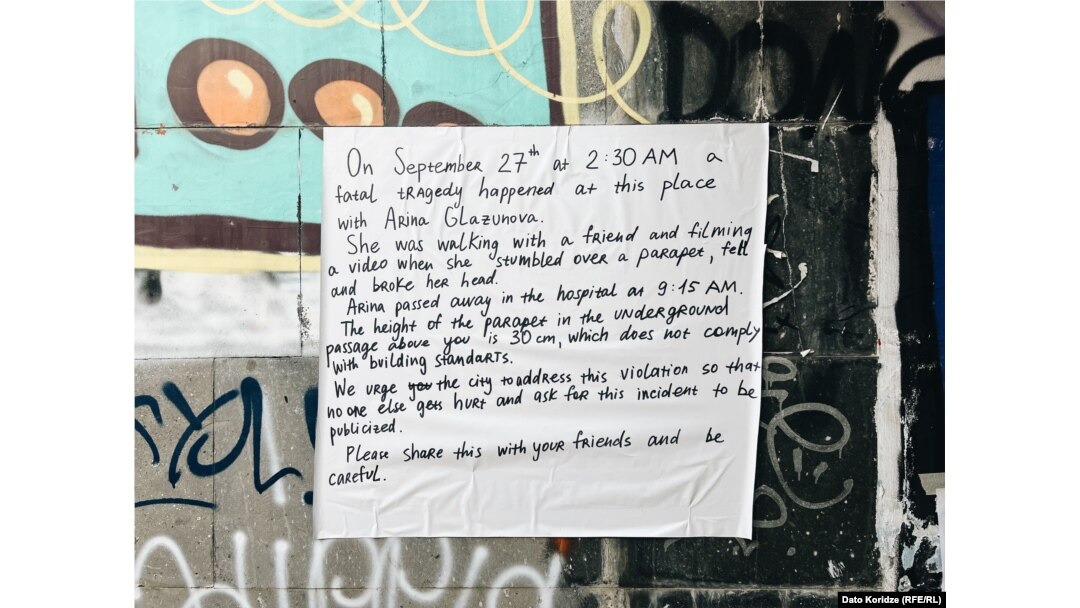 On September 27th at 2:30 AM a
fatal tragedy happened at this place
with Arina Glazunova.
She was walking with a friend and filming
a video when she stumbled over a parapet, fell
and broke her head.
Arina passed away in the hospital at 9:15 AM.
The height of the parapet in the underground
passage above you is 30 cm, which does not comply
with building standarts.
We urge you the city to address this violation so that
no one else gets hurt and ask for this incident to be
publicized.
Please share this with your friends and be
careful.
Dato Koridze (RFE/RL)